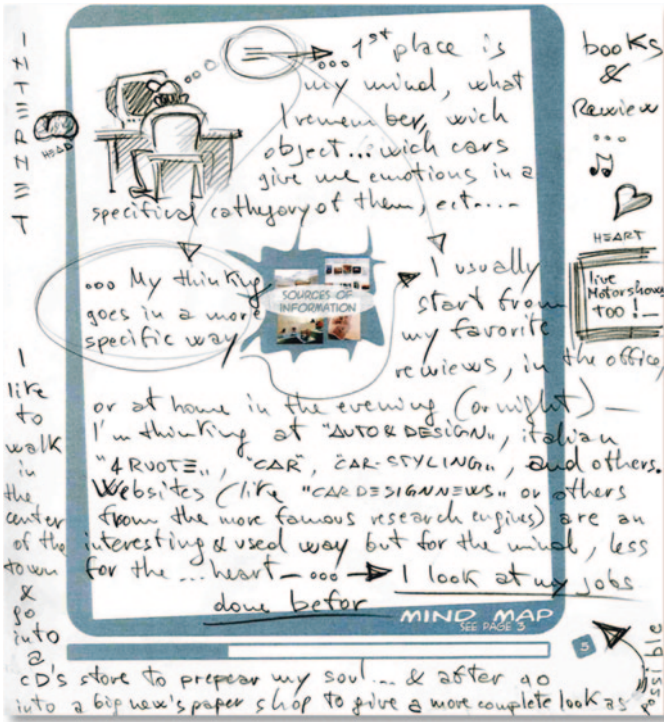 INTERNET
HEAD
... 1st place is
my mind, what
I remember, wich
object... wich cars
give me emotions in a
specifical cathegory of them, ect....
books
&
Rewiew
...
HEART
live
Motorshows
TOO !
... My thinking
goes in a more
specific way
SOURCES OF
INFORMATION
I usually
start from
my favorite
rewiews, in the office,
or at home in the evening (or night) —
I'm thinking at "AUTO & DESIGN", italian
"4RUOTE", "CAR", "CAR-STYLING", and others.
Websites (like "CARDESIGNNEWS" or others
from the more famous research engines) are an
interesting & used way but for the mind, less
for the ... heart — ... I look at my jobs
done befor
MIND MAP
SEE PAGE 3
5
I
like
to
walk
in
the
center
of the
town
&
go
into
a
CD's store to prepear my soul... & after go
into a big new's paper shop to give a more complete look as
possible